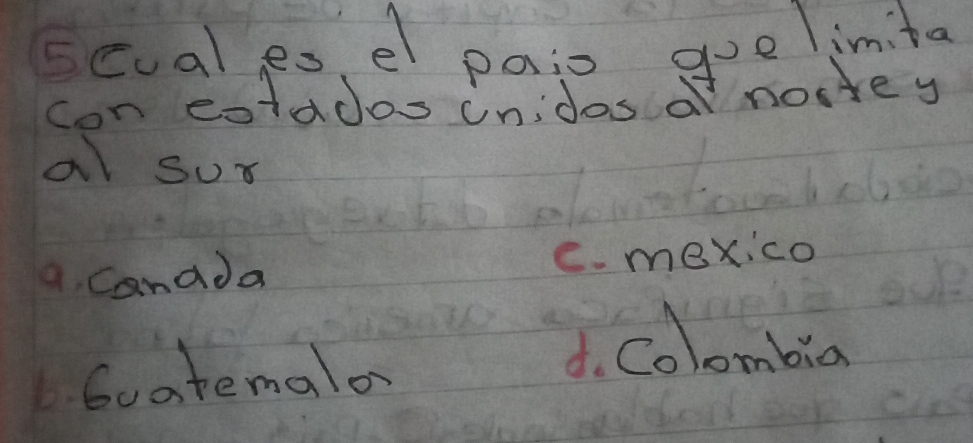 5 Cual es el pais que limita
con estados unidos al norte y
al sur
a. Canada
c. mexico
b. Guatemala
d. Colombia